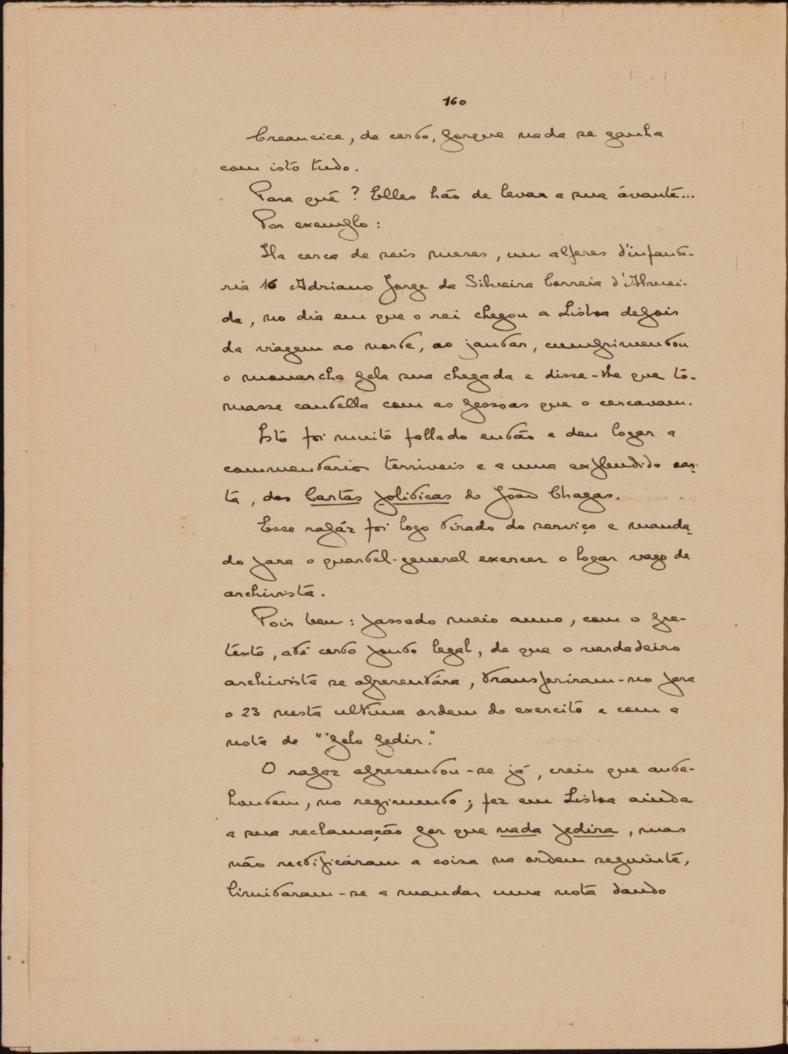 160
Creancice, de certo, porque nada se ganha
com isto tudo.
Para quê? Elles hão de levar a sua ávante...
Por exemplo:
Ha cerca de seis mezes, um alferes d'infante-
ria 16 Adriano Jorge da Silveira Correia d'Almei-
da, no dia em que o rei chegou a Lisboa depois
da viagem ao norte, ao jantar, cumprimentou
o monarcha pela sua chegada e disse-lhe que to-
masse cautella com as pessoas que o cercavam.
Isto foi muito fallado então e deu logar a
commentarios terriveis e a uma explendida car-
ta, das Cartas politicas do João Chagas.
Esse rapáz foi logo tirado do serviço e manda-
do para o quartel-general exercer o logar vago de
archivista.
Pois bem: passado meio anno, com o pre-
texto, até certo ponto legal, de que o verdadeiro
archivista se apresentára, transferiram-no para
o 23 nesta ultima ordem do exercito e com a
nota de "pelo pedir."
O rapaz apresentou-se já, creio que ante-
hontem, no regimento; fez em Lisboa ainda
a sua reclamação por que nada pedira, mas
não rectificáram a coisa na ordem seguinte,
limitaram-se a mandar uma nota dando